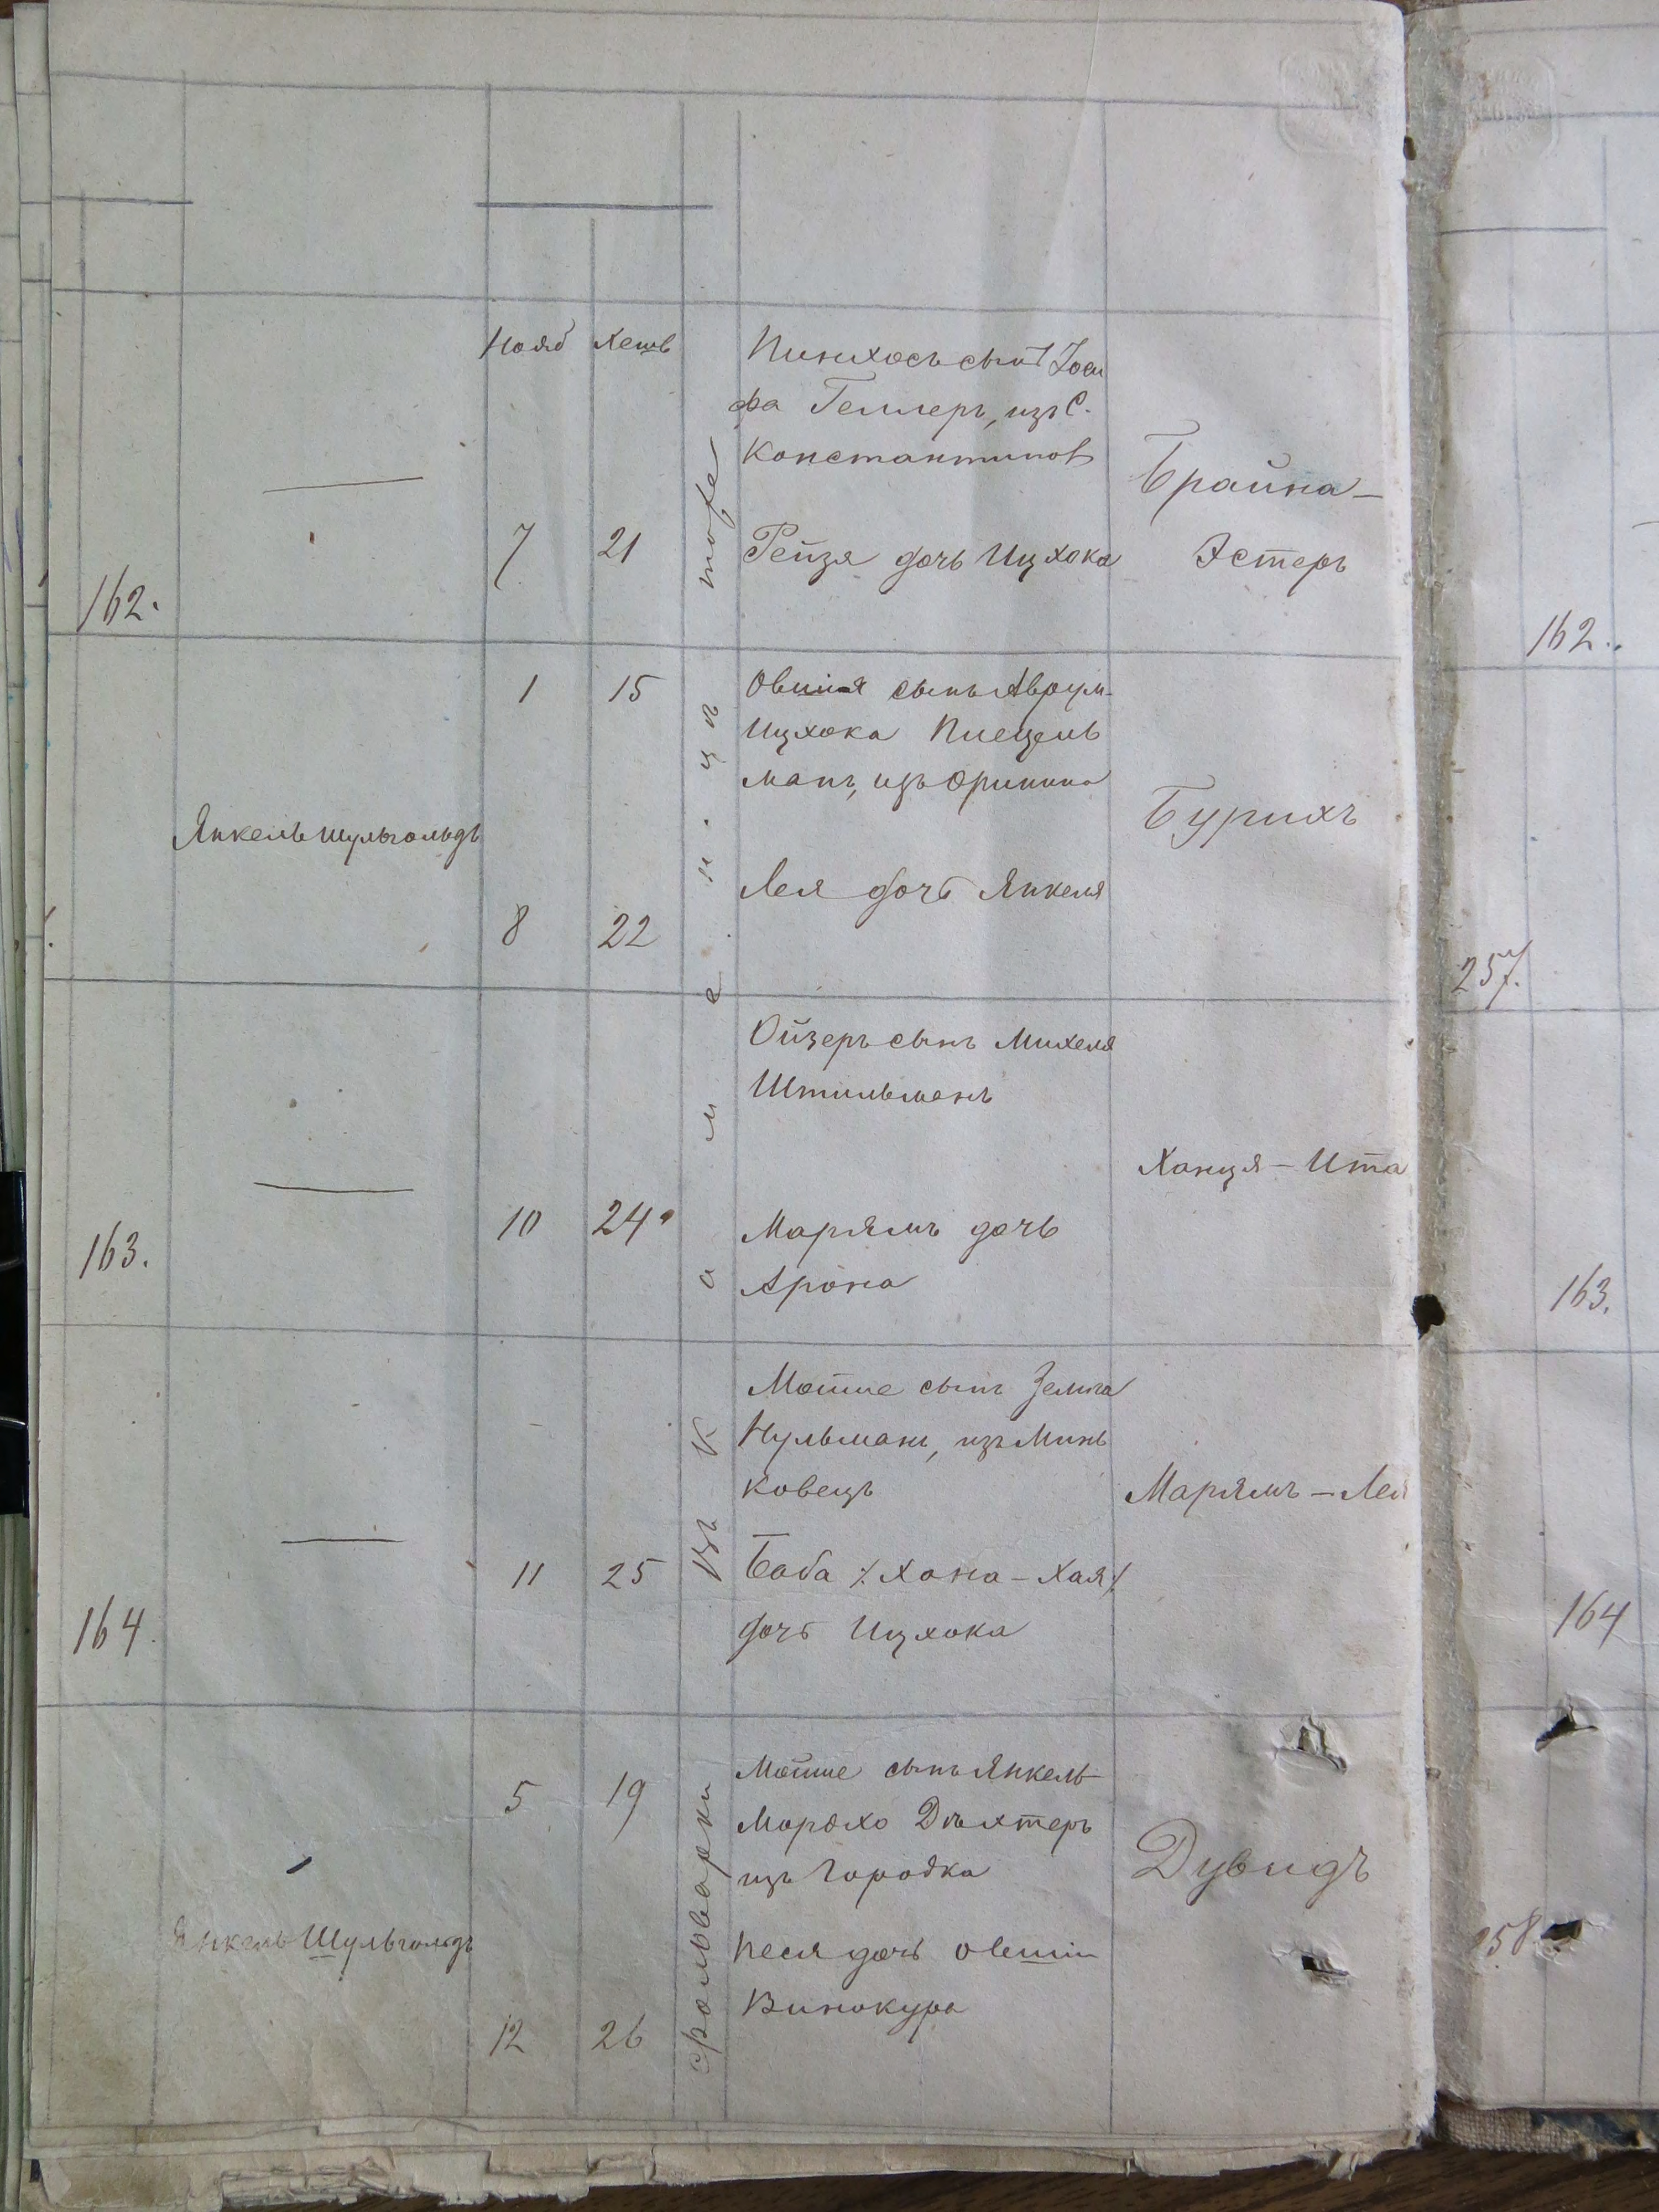 Нояб Хешв
Пинхосъ сынъ Іоси
фа Геллеръ, изъ С.
Константинов
Брайна-
7 21 Рейзя дочь Ицхока Эстеръ
162. 162.
тоже
1 15 Овшія сынъ Аврум-
Ицхока Плецель
манъ, изъ Оринина
Янкель Шульгольдъ Бурихъ
Лея дочь Янкеля
8 22
257.
Ойзеръ сынъ Михеля
Штильманъ
Ханця - Ита
10 24 Марьямъ дочь
163. Арона 163.
въ каменцъ
Мошше сынъ Зелига
Нульманъ, изъ Минь
ковецъ Марьямъ - Лея
11 25 Баба /: Хана - Хая :/
164. дочь Ицхока 164
5 19 Мошше сынъ Янкель
Мордко Дѣхтеръ
изъ Городка Дувидъ
Янкель Шульгольдъ Песя дочь Овшіи 258
Винокура
12 26
фольварки